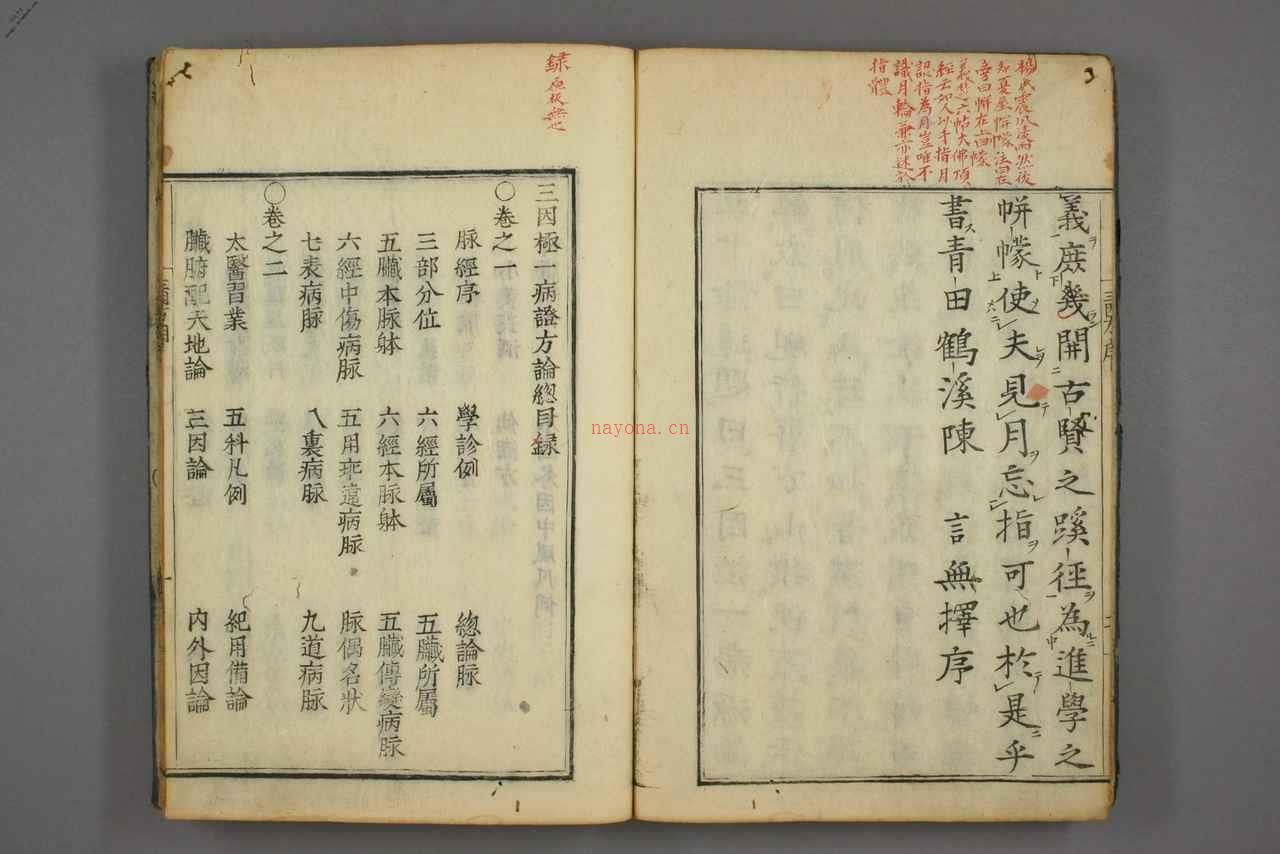 義庶幾開古賢之蹊徑為進學之
帡幪使夫見月忘指可也於是乎
書青田鶴溪陳 言無擇序
三因極一病證方論總目録
〇卷之一
脉經序 學診例 總論脉
三部分位 六經所屬 五臟所屬
五臟本脉躰 六經本脉躰 五臟傳變病脉
六經中傷病脉 五用乖違病脉 脉偶名狀
七表病脉 八裏病脉 九道病脉
〇卷之二
太醫習業 五科凡例 紀用備論
臟腑配天地論 三因論 内外因論
義楚六帖大佛頂
經云如人以手指月
認指為月豈唯不
識月輪兼亦迷於
指體
録
nayona.cn